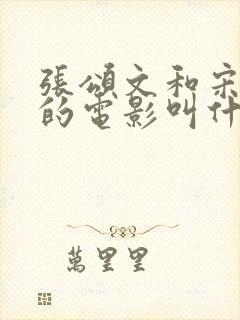 張頌文和宋
的電影叫什
萬里里